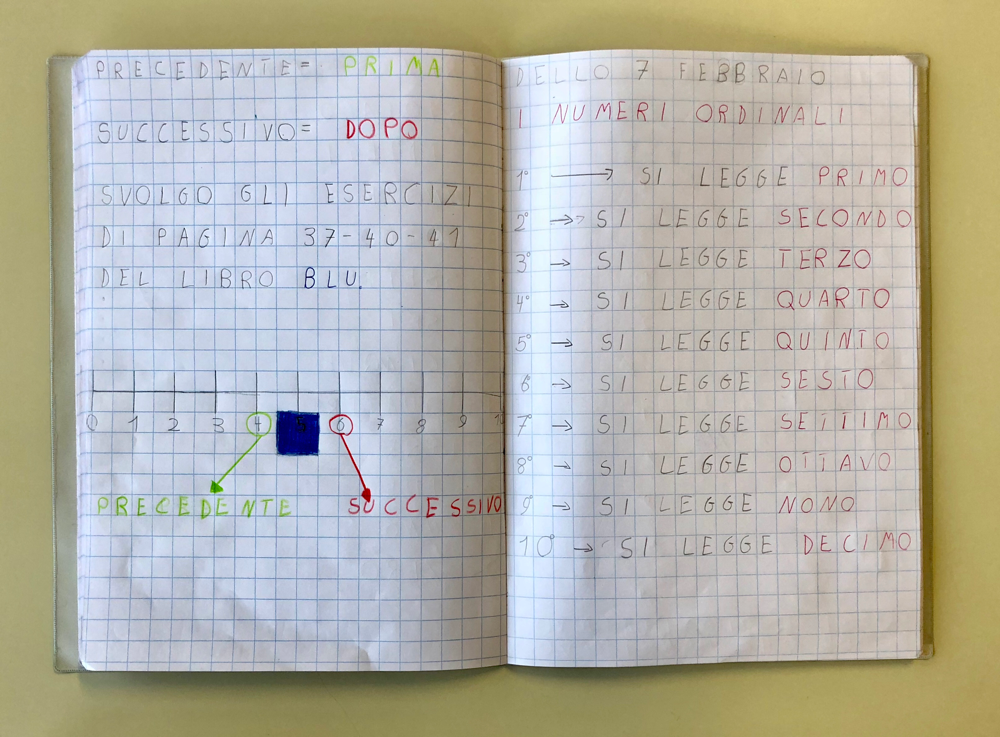 PRECEDENTE= PRIMA
SUCCESSIVO= DOPO
SVOLGO GLI ESERCIZI
DI PAGINA 37-40-41
DEL LIBRO BLU.
0 1 2 3 4 5 6 7 8 9
PRECEDENTE SUCCESSIVO
DELLO 7 FEBBRAIO
I NUMERI ORDINALI
1° → SI LEGGE PRIMO
2° → SI LEGGE SECONDO
3° → SI LEGGE TERZO
4° → SI LEGGE QUARTO
5° → SI LEGGE QUINTO
6° → SI LEGGE SESTO
7° → SI LEGGE SETTIMO
8° → SI LEGGE OTTAVO
9° → SI LEGGE NONO
10° → SI LEGGE DECIMO